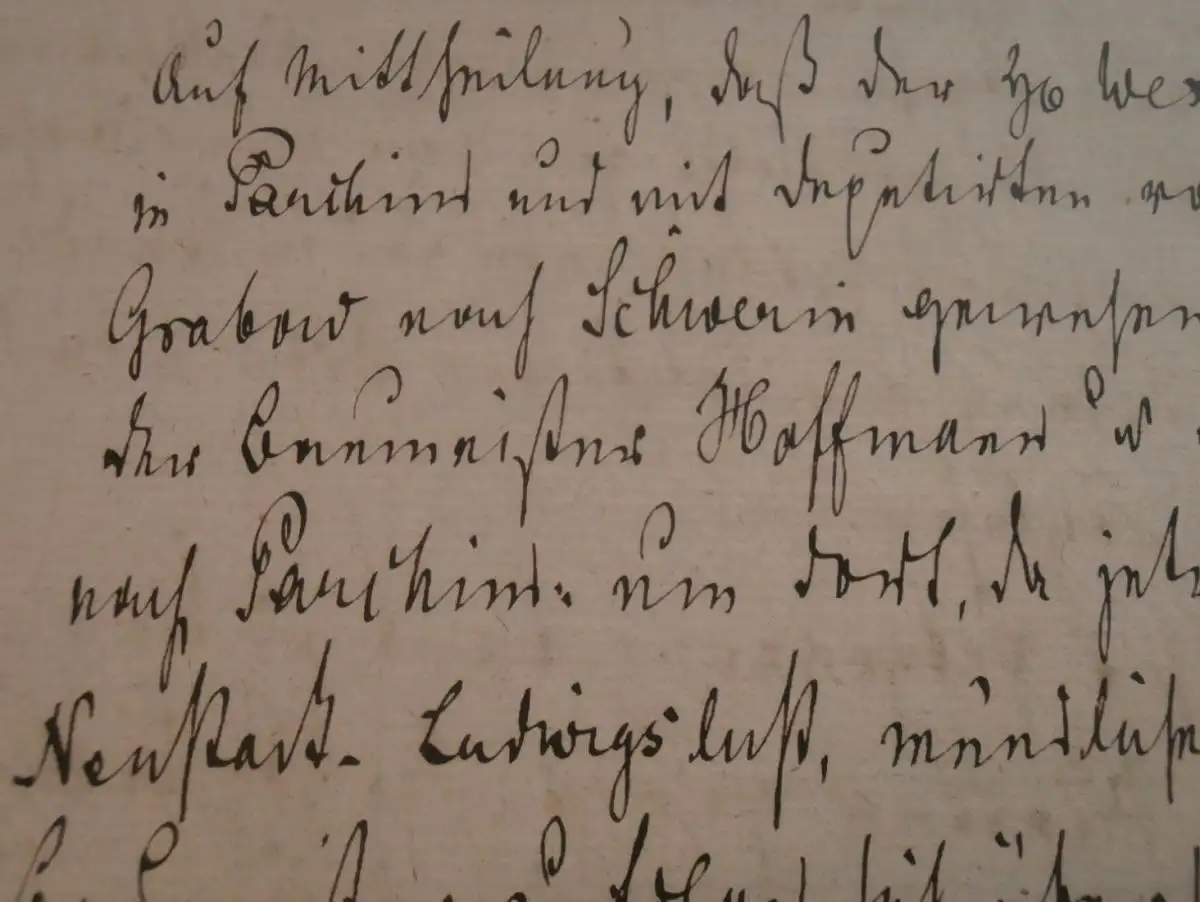 Auf Mittheilung, daß der
in Parchim und mit Deputirten
Grabow nach Schwerin gewesen
der Baumeister Hoffmann
nach Parchim um dort, da
Neustadt-Ludwigslust,